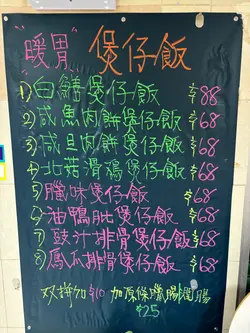 "暖胃" 煲仔飯
1) 白鱔煲仔飯 $88
2) 咸魚肉餅煲仔飯 $68
3) 咸旦肉餅煲仔飯 $68
4) 北菇滑鷄煲仔飯 $68
5) 臘味煲仔飯 $68
6) 油鴨肶煲仔飯 $68
7) 豉汁排骨煲仔飯 $68
8) 鳳爪排骨煲仔飯 $68
双拼加$10 加原條臘腸潤腸
$25